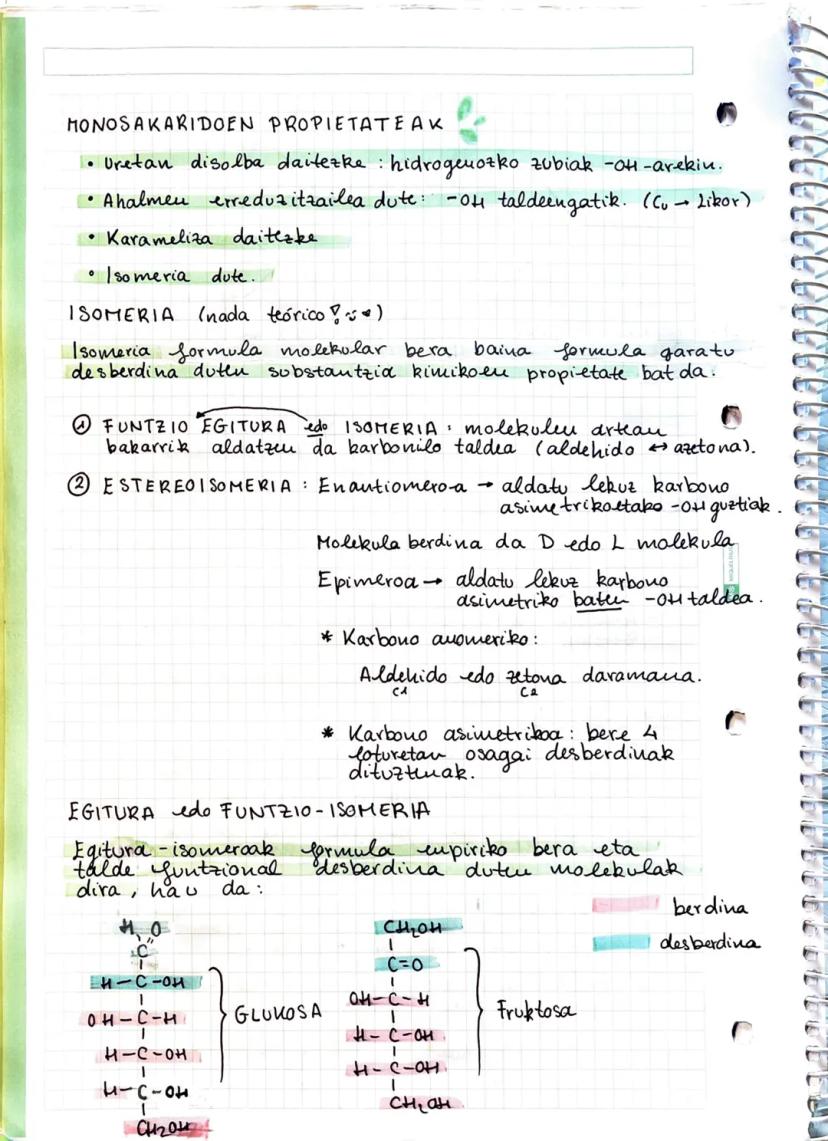 MONOSAKARIDOEN PROPIETATEAK
• Uretan disolba daitezke : hidrogenozko zubiak -OH-arekin.
• Ahalmen erreduzitzailea dute: -OH taldeengatik. (Cu → Likor)
• Karameliza daitezke
• Isomeria dute.
ISOMERIA (nada teórico
Isomeria formula molekular bera baina formula garatu
desberdina duten substantzia kimikoen propietate bat da.
① FUNTZIO EGITURA edo ISOMERIA : molekulen artean
bakarrik aldatzen da karbonilo taldea (aldehido ↔ azetona).
② ESTEREOISOMERIA : Enantiomero-a → aldatu lekuz karbono
asimetrikoetako -OH guztiak.
Molekula berdina da D edo L molekula
Epimeroa → aldatu lekuz karbono
asimetriko baten -OH taldea.
* Karbono anomeriko :
Aldehido edo zetona daramana.
C1 C2
* Karbono asimetrikoa : bere 4
loturetan osagai desberdinak
dituztenak.
EGITURA edo FUNTZIO-ISOMERIA
Egitura-isomeroak formula enpiriko bera eta
talde funtzional desberdina duten molekulak
dira, hau da :
berdina
desberdina
H O
C
H-C-OH
OH-C-H
H-C-OH
H-C-OH
CH₂OH
GLUKOSA
CH₂OH
C=O
OH-C-H
H-C-OH
H-C-OH
CH₂OH
Fruktosa